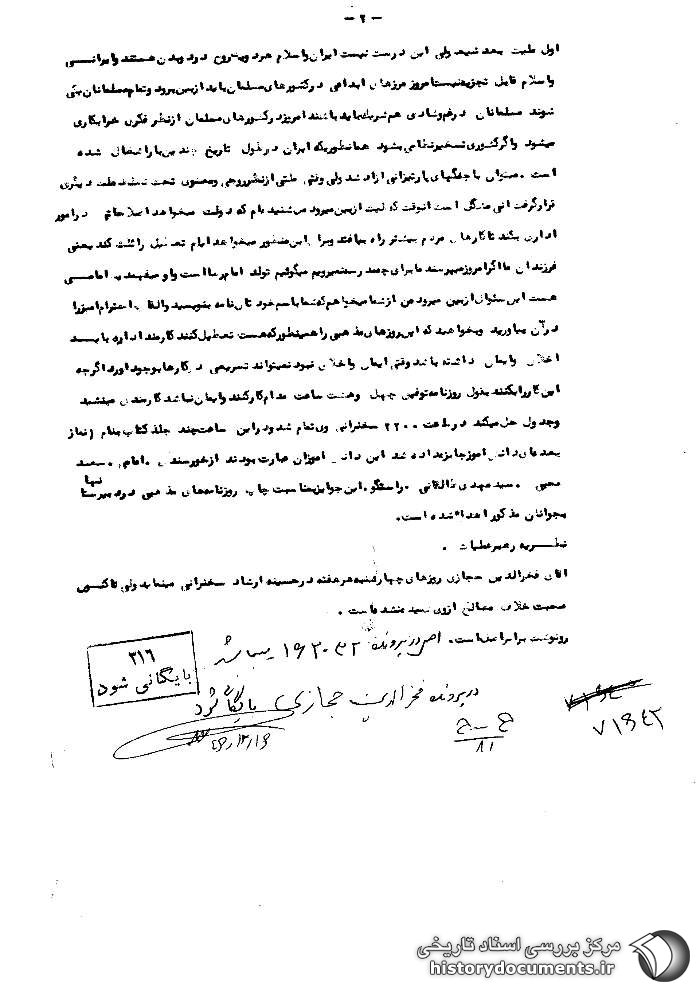 - ۲ -
اول ملیت بعد شیعه ولی این درست نیست ایران و اسلام هر دو یک روح در دو بدن هستند و ایرانی
و اسلام قابل تجزیه نیستند امروز مرزهای ابداعی در کشورهای مسلمان باید از بین برود و تمام مسلمانان یکی
شوند مسلمانان در غم و شادی هم شریک باید باشند امروز در کشورهای مسلمان از نظر فکری خرابکاری
میشود و اگر کشوری تسخیر نظامی بشود همانطوریکه ایران در طول تاریخ چندین بار اشغال شده
است میتوان با جنگهای پارتیزانی آزاد شد ولی وقتی ملتی از نظر روحی و معنوی تحت تسلط ملت دیگری
قرار گرفت این مرگ است آنوقت که ملیت از بین میرود می شنیدم که دولت میخواهد اصلاحاتی در امور
اداری بکند تا کارهای مردم بیشتر راه بیافتد و برای این منظور میخواهد ایام تعطیل را کم کند یعنی
فرزندان ما اگر امروز میپرسند ما برای چه مدرسه نمیرویم میگوئیم تولد امام رضا است و او میفهمد امامی
هست این سئوال از بین میرود من از شما میخواهم که شما با اسم خودتان نامه بنویسید و القاب احترام آمیز را
در آن بیاورید و بخواهید که این روزهای مذهبی را همینطور که هست تعطیل کنند کارمند اداره باید
اخلاق و ایمان داشته باشد وقتی ایمان و اخلاق نبود نمیتواند تسریعی در کارها بوجود آورد اگرچه
این کار را بکنند بقول روزنامه توفیق چهل و هشت ساعت مدام کار کنند و ایمان نباشد کارمند می نشیند
و جدول حل میکند در ساعت ۲۲۰۰ سخنرانی وی تمام شد و در این ساعت چند جلد کتاب بنام نماز
بعده‌ای دانش آموز جایزه داده شد این دانش آموزان عبارت بودند از خورسندی . امامی . سعید
محبی . سید مهدی طالقانی . راستگو . این جوایز بمناسبت چاپ روزنامه‌های مذهبی در دبیرستانها
بجوانان مذکور اهداء شده است .
نظریه رهبر عملیات .
آقای فخرالدین حجازی روزهای چهارشنبه هر هفته در حسینیه ارشاد سخنرانی مینماید ولی تاکنون
صحبت خلاف مصالح از وی شنیده نشده است .
رونوشت برابر اصل است . اصل در پرونده ۱۶۳۰۳۲ میباشد
۳۱۶
بایگانی شود
در پرونده فخرالدین حجازی بایگانی گردد
۴۶/۱۲/۱۶
ح - ج
۸۱
۷۱۶۴۲
مرکز بررسی اسناد تاریخی
historydocuments.ir